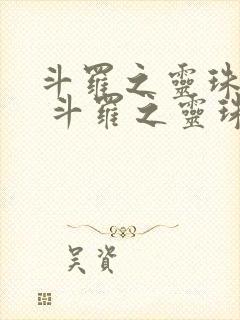 斗羅之靈珠
斗羅之靈珠
吴資